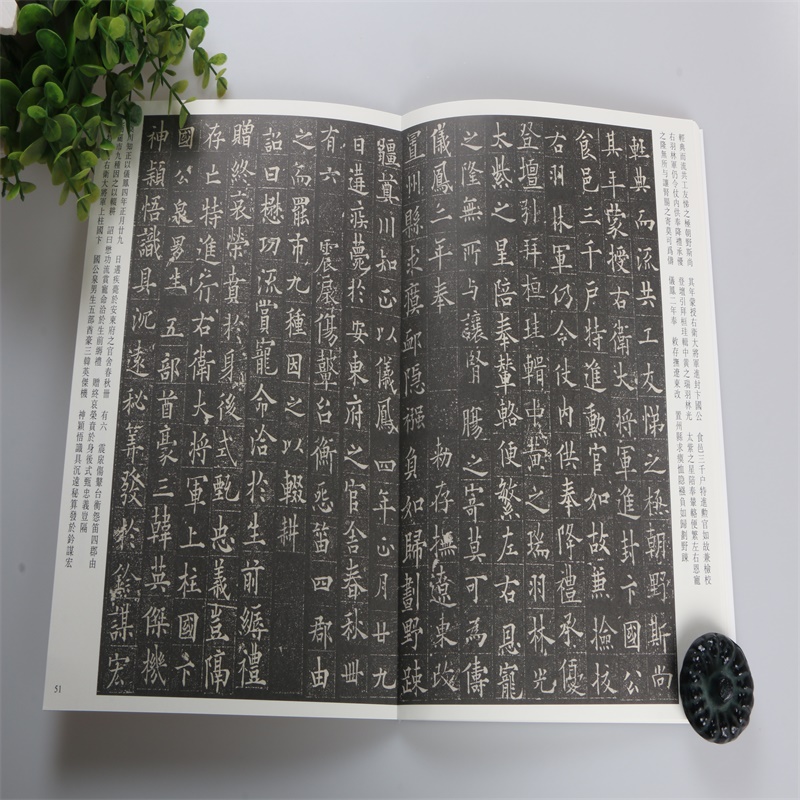 輕典而流共工友悌之極朝野斯尚 其年蒙授右衛大將軍進封卞國公 食邑三千戶特進勳官如故兼檢校
右羽林軍仍令仗內供奉降禮承優 登壇引拜桓珪輯中黃之瑞羽林光 太紫之星陪奉輦輅便繁左右恩寵
之隆無所與讓腎腸之寄莫可爲儔 儀鳳二年奉 敕存撫遼東改 置州縣求瘼恤隱襁負如歸劃野疎
輕典而流共工友悌之極朝野斯尚
其年蒙授右衛大將軍進封卞國公
食邑三千戶特進勳官如故兼檢校
右羽林軍仍令仗內供奉降禮承優
登壇引拜桓珪輯中黃之瑞羽林光
太紫之星陪奉輦輅便繁左右恩寵
之隆無所與讓腎腸之寄莫可為儔
儀鳳二年奉 勑存撫遼東改
置州縣求瘼卹隱襁負如歸畫野疎
疆奠川知正以儀鳳四年正月廿九
日遘疾薨於安東府之官舍春秋卌
有六 震扆傷鼙台衡怨笛四郡由
之而罷市九種因之以輟耕
詔曰懋功流賞寵命洽於生前縟禮
贈終哀榮賁於身後式甄忠義豈隔
存亡特進行右衛大將軍上柱國卞
國公泉男生五部酋豪三韓英傑機
神穎悟識具沉遠秘筭發於鈐謀宏
川知正以儀鳳四年正月廿九 日遘疾薨於安東府之官舍春秋卌 有六 震扆傷鼙台衡怨笛四郡由
罷市九種因之以輟耕 詔曰懋功流賞寵命洽於生前縟禮 贈終哀榮賁於身後式甄忠義豈隔
右衛大將軍上柱國卞 國公泉男生五部酋豪三韓英傑機 神穎悟識具沉遠秘算發於鈐謀宏
51